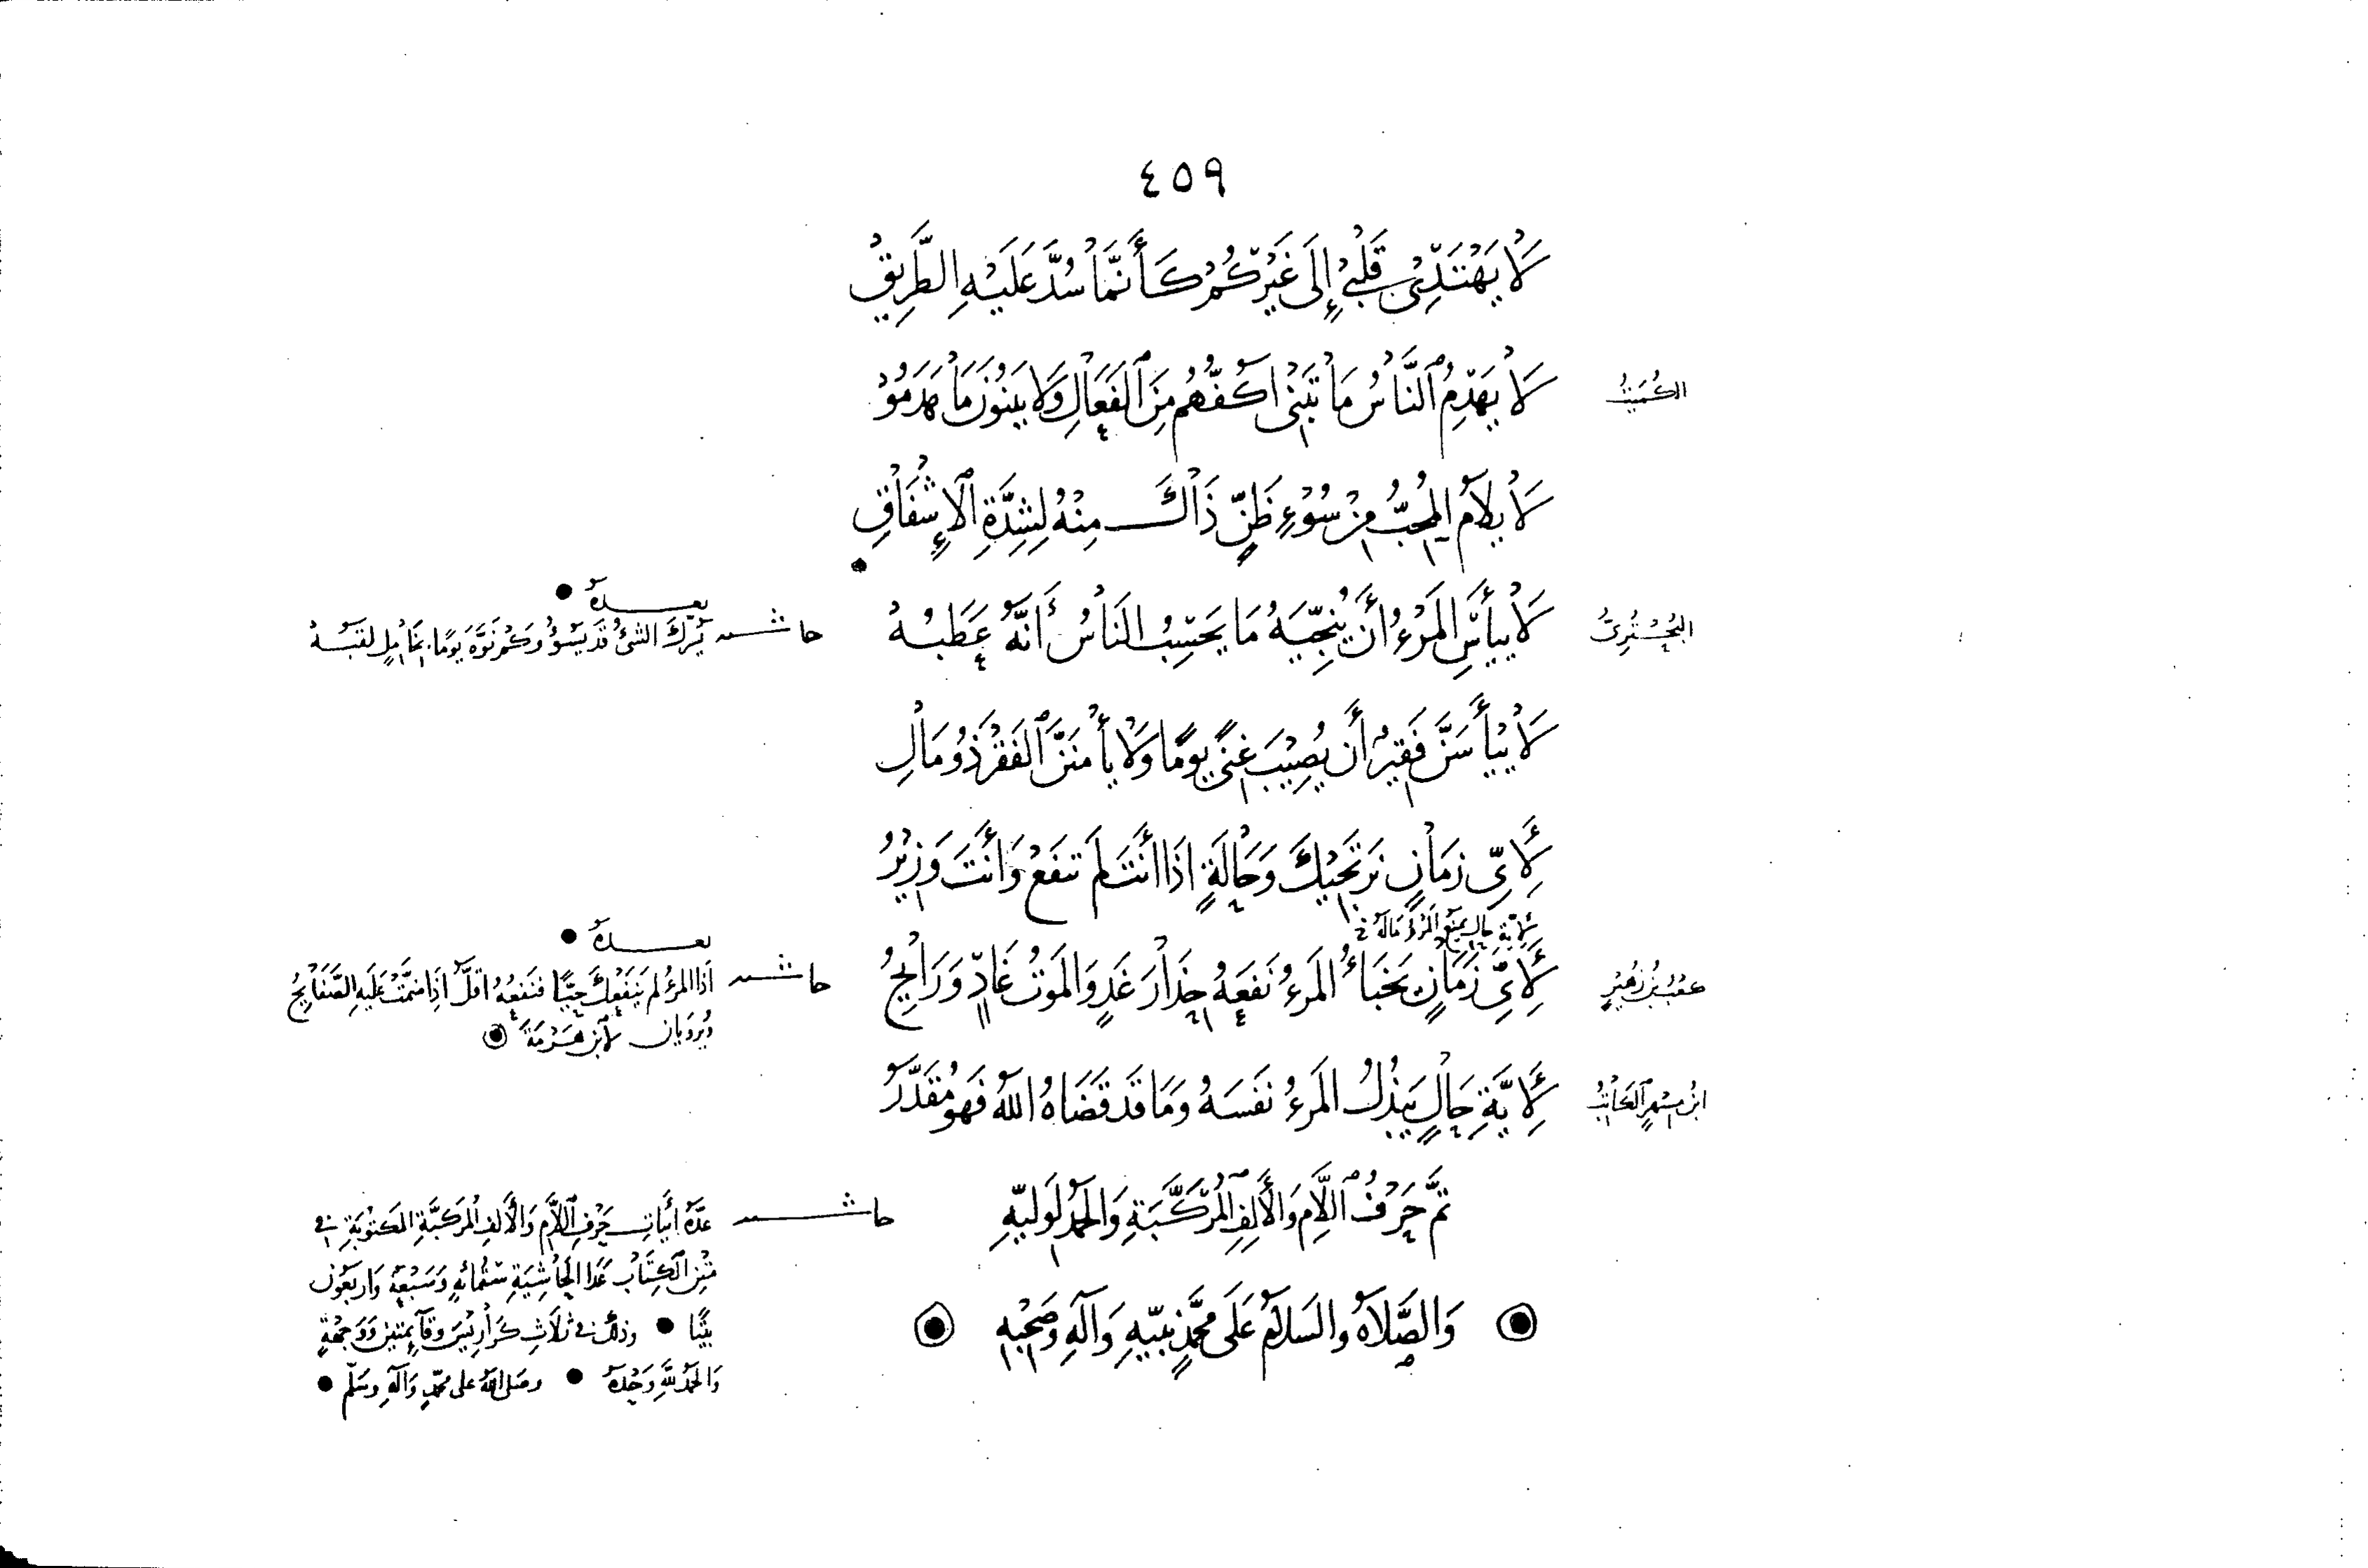 ٤٥٩
لَا يَهْتَدِي قَلْبِي إِلَى غَيْرِكُمْ كَأَنَّمَا سُدَّ عَلَيْهِ الطَّرِيقُ
الكُمَيْتُ
لَا يَهْدِمُ النَّاسُ مَا تَبْنِي اكُفُّهُم مِنَ الفَعَالِ وَلَا يَبْنُوْنَ مَا هَدَمُوْا
لَا يُلَامُ المُحِبُّ مِنْ سُوْءِ ظَنٍّ ذَاكَ مِنْهُ لِشِدَّةِ الإِشْفَاقِ
البُحْتُرِيُّ
لَا يَيْأَسِ المَرْءُ أَنْ يُنَجِّيَهُ مَا يَحْسِبُ النَاسُ أَنَّهُ عَطَبُهْ
حاشية
بعده
يَسُرُّكَ الشَيْءُ قَدْ يَسُوْءُ وَكَمْ نَوَّهَ يَوْمًا بِخَامِلٍ لَقَبُهْ
لَا يَيْأَسَنَّ فَقِيْرٌ أَن يُصِيْبَ غِنًى يَوْمًا وَلَا يَأْمَنَنَّ الفَقْرَ ذُوْ مَالِ
لِأَيِّ زَمَانٍ نَرْتَجِيْكَ وَحَالَةٍ اذَا أَنْتَ لَمْ تَنفَعْ وَأَنْتَ وَزِيْرُ
لِأَيَّةِ حَالٍ يَمْنَعُ المَرْءُ مَالَهُ
عقبة بن زُهَيْرٍ
لِأَيِّ زَمَانٍ يَخْبَأُ المَرْءُ نَفْعَهُ حِذَارَ غَدٍ وَالمَوْتُ غَادٍ وَرَائِحُ
حاشية
بعده
اذَا المَرْءُ لَم يَنْفَعْكَ حَيًّا فَنَفْعُهُ اقَلُّ اذَا ضَمَّتْ عَلَيْهِ الصَّفَائِحُ
وَيُرْوَيَانِ لِابْنِ هَرْمَةَ
ابْنُ مُسْهِرٍ الكَاتِبُ
لِأَيَّةِ حَالٍ يَبْذُلُ المَرْءُ نَفْسَهُ وَمَا قَدْ قَضَاهُ اللَّهُ فَهْوَ مُقَدَّرُ
تَمَّ حَرْفُ اللَّامِ وَالأَلِفِ المُرَكَّبَةِ وَالحَمْدُ لِوَلِيِّهِ
وَالصَّلَاةُ وَالسَلَامُ عَلَى مُحَمَّدٍ نَبِيِّهِ وَآلِهِ وَصَحْبِهِ
حاشية
عِدَّةُ ابْيَاتِ حَرْفِ اللَّامِ وَالأَلِفِ المُرَكَّبَةِ المَكْتُوْبَةِ فِي
مَتْنِ الكِتَابِ عَدَا الحَاشِيَةِ سِتُّمِائَةٍ وَسَبْعَةٌ وَارْبَعُوْنَ
بَيْتًا وذلك في ثَلَاثِ كَرَارِيْسَ وَقَائِمَتَيْنِ وَوَجْهَةٍ
وَالحَمْدُ لِلَّهِ وَحْدَهُ وصَلَى اللهُ عَلى مُحَمَّدٍ وَآلِهِ وسَلَّم